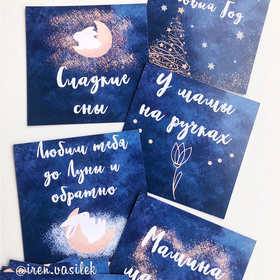 Сладкие
сны
Год
У мамы
на ручках
Любим тебя
до Луны и
обратно
Мамина
@iren.vasilek